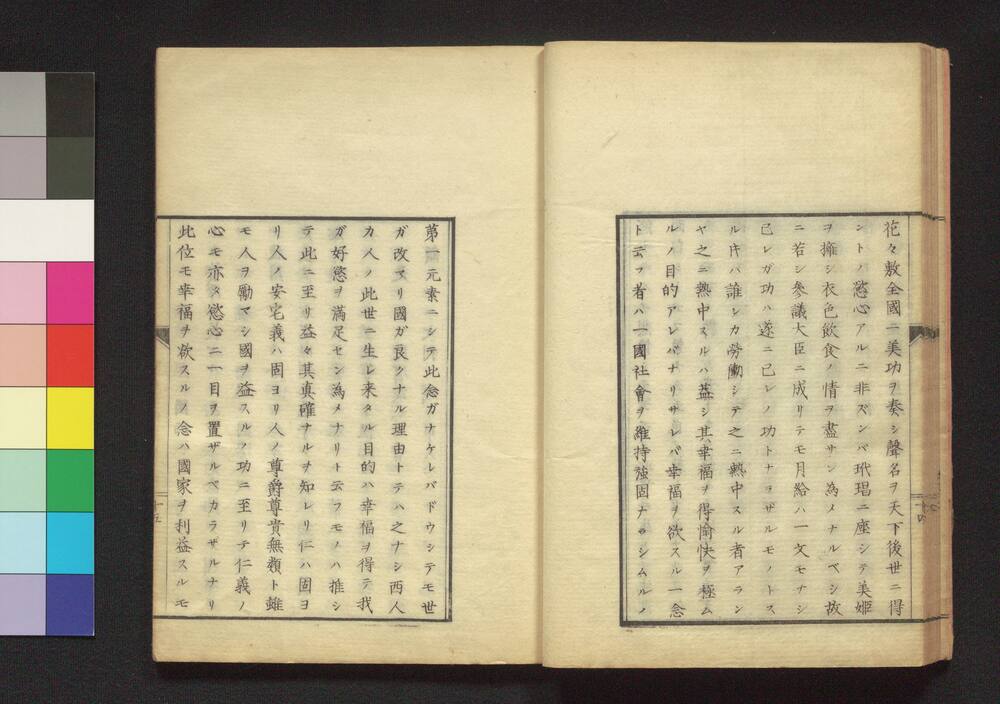 花々敷全國ニ美功ヲ奏シ聲名ヲ天下後世ニ得
ントノ慾心アルニ非ズンバ玳瑁ニ座シテ美姫
ヲ擁シ衣色飲食ノ情ヲ盡サン為メナルベシ故
ニ若シ參議大臣ニ成リテモ月給ハ一文モナシ
己レガ功ハ遂ニ己レノ功トナラザルモノトス
ル片ハ誰シカ勞働シテ之ニ熱中スル者アラン
ヤ之ニ熱中スルハ葢シ其幸福ヲ得愉快ヲ極ム
ルノ目的アレバナリサレバ幸福ヲ欲スル一念
ト云フ者ハ一國社會ヲ維持強固ナラシムルノ
第一元素ニシテ此念ガナケレバドウシテモ世
ガ改マリ國ガ良クナル理由トテハ之ナシ西人
カ人ノ此世ニ生レ来タル目的ハ幸福ヲ得テ我
ガ好慾ヲ滿足セン為メナリト云フモノハ推シ
テ此ニ至リ益々其真確ナルヲ知レリ仁ハ固ヨ
リ人ノ安宅義ハ固ヨリ人ノ尊爵尊貴無類ト雖
モ人ヲ勵マシ國ヲ益スルノ功ニ至リテ仁義ノ
心モ亦タ慾心ニ一目ヲ置ザルベカラザルナリ
此位モ幸福ヲ欲スルノ念ハ國家ヲ利益スルモ
十五